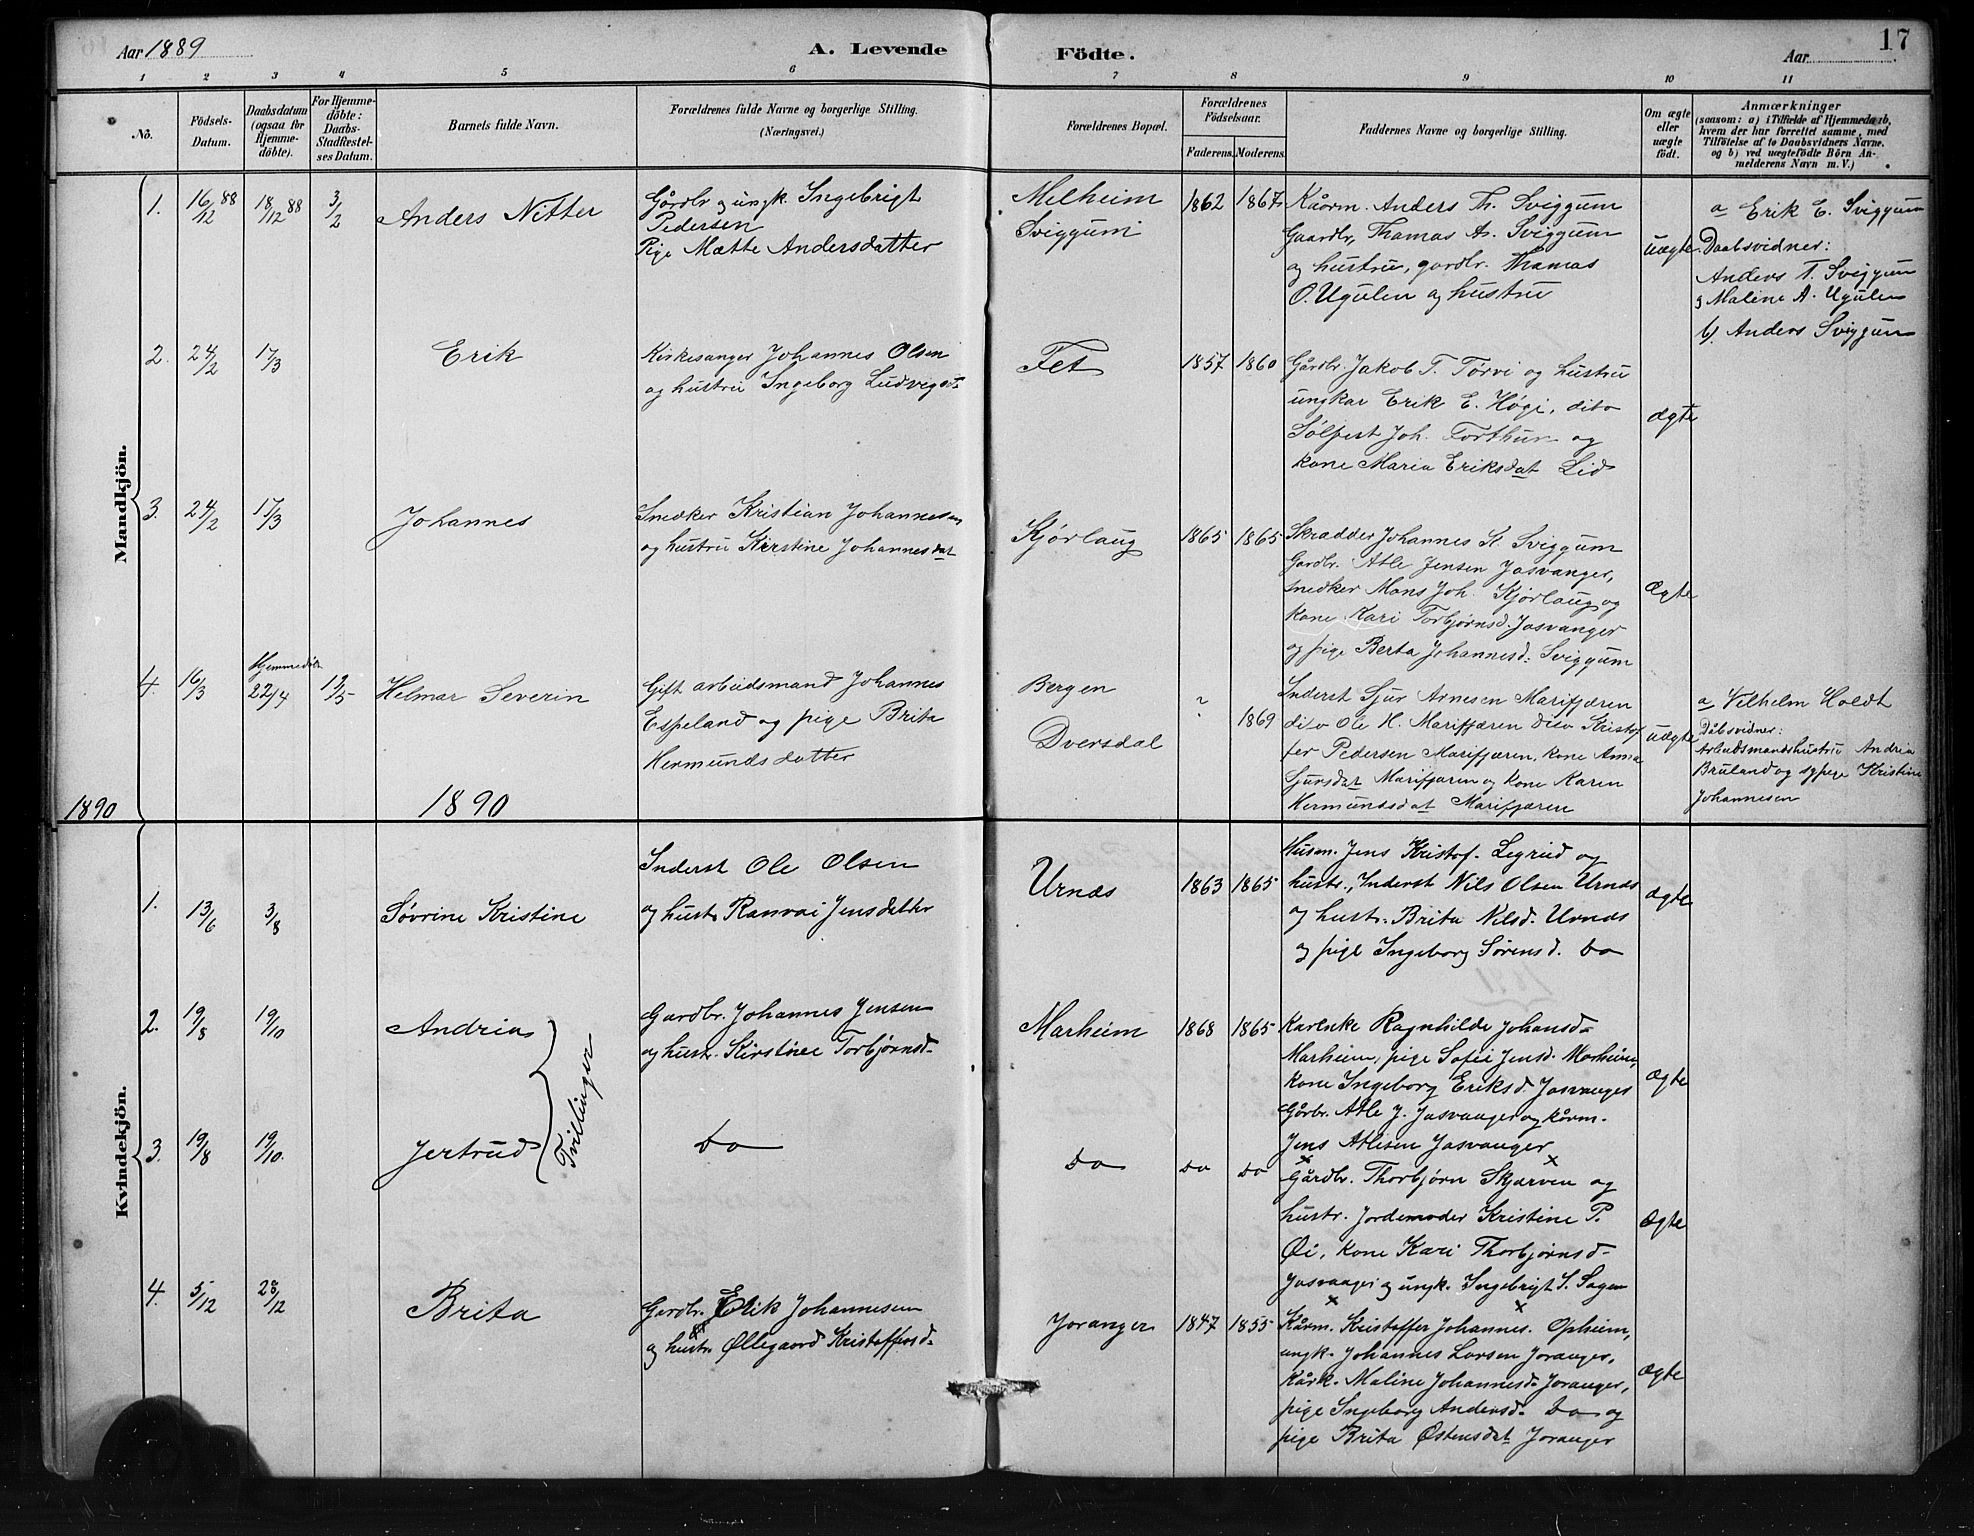 Aar 1889
A. Levende
Födte.
Aar
17
1 2 3 4 5 6 7 8 9 10 11
No.
Födsels-
Datum.
Daabsdatum
(ogsaa for
Hjemme-
döbte).
For Hjemme-
döbte:
Daabs-
Stadfestel-
ses Datum.
Barnets fulde Navn.
Forældrenes fulde Navne og borgerlige Stilling.
(Næringsvei.)
Forældrenes Bopæl.
Forældrenes
Födselsaar.
Faderens. Moderens.
Faddernes Navne og borgerlige Stilling.
Om ægte
eller
uægte
födt.
Anmærkninger
(saasom: a) i Tilfælde af Hjemmedaab,
hvem der har forrettet samme, med
Tilföielse af to Daabsvidners Navne.
og b) ved uægtefödte Börn An-
melderens Navn m. V.)
Mandkjön.
1. 16/12 88 18/12 88 3/2 Anders Nitter
Gårdbr og ungk. Ingebrigt
Pedersen
Pige Mætte Andersdatter
Melheim
Sviggum
1862 1867
Kåorm. Anders Th. Sviggum
Gaardbr, Thamas As. Sviggum
og hustru, gardbr. Thamas
O. Ugulen og hustru
uægte
a Erik E. Sviggum
Daabsvidner:
Anders T. Sviggum
g Maline A. Ugulen
b/. Anders Sviggum
2. 24/2 17/3 Erik
Kirkesanger Johannes Olsen
og hustru Ingeborg Ludvigsd-
Fet
1857 1860
Gårdbr. Jakob T. Törvi og hustru
ungkar Erik E. Høgi, dito
Sølfest Joh. Forthun og
Kone Maria Eriksdat Lid
ægte
3. 24/2 17/3 Johannes
Snedker Kristian Johannesen
og hustru Kirstine Johannesdat
Kjørlaug
1865 1865
Skrædder Johannes St. Sviggum
Gardbr. Atle Jensen Josvanger,
snedker Mons Joh. Kjørlaug og
Kone Kari Torbjørnsd. Josvanger
og pige Berta Johannesd: Sviggum
Ægte
4. 16/3 Hjemmedøbt 22/4 12/5 Helmar Severin
Gift arbeidsmand Johannes
Espeland og pige Brita
Hermundsdatter
Bergen
Dversdal
? 1869
Inderst Sjur Arnesen Marifjæren
dito Ole H. Marifjæren dito Kristof
fer Pedersen Marifjæren, kone Anna
Sjursdat Marifjæren og kone Karen
Hermundsdat Marifjæren
uægte
a Vilhelm Holdt
Dåbsvidner:
Arbeidsmandshustru Andria
Bruland og sypige Kristine
Johannesen
1890
1890
Kvindekjön.
1. 13/6 3/8 Søvrine Kristine
Inderst Ole Olsen
og hustr Ranvai Jensdatter
Urnæs
1863 1865
Husm. Jens Kristof. Legrid og
hustr., Inderst Nils Olsen Urnæs
og hustr. Brita Nilsd. Urnæs
og pige Ingeborg Sørensd. Do
ægte
2. 19/8 19/10 Andria
Gardbr. Johannes Jensen
og hustr. Kirstine Torbjørnsd-
Marheim
1868 1865
Karenke Ragnhilde Johansd-
Marheim, pige Sofie Jensd. Marheim,
Kone Ingeborg Eriksd. Josvanger
Gårbr. Atle J. Josvanger og kårm.
Jens Atlesen Josvanger
Ægte
Tvillinger
3. 19/8 19/10. Jertrud
Do
Do Do Do
Gårdbr. Thorbjørn Skjærven og
hustr. Jordemoder Kristine P.
Øi, kone Kari Thorbjørnsd-
Josvanger og ungk. Ingebrigt S. Sagen
Ægte
4. 5/12 28/12 Brita
Gardbr. Erik Johannesen
og hustr Øllegaard Kristoffersd-
Joranger
1847 1855
Kårm. Kristoffer Johannes. Opheim,
ungk. Johannes Larsen Joranger,
Kårk. Maline Johannesd. Joranger,
pige Ingeborg Andersd. Do og
pige Brita Østensdat Joranger
ægte